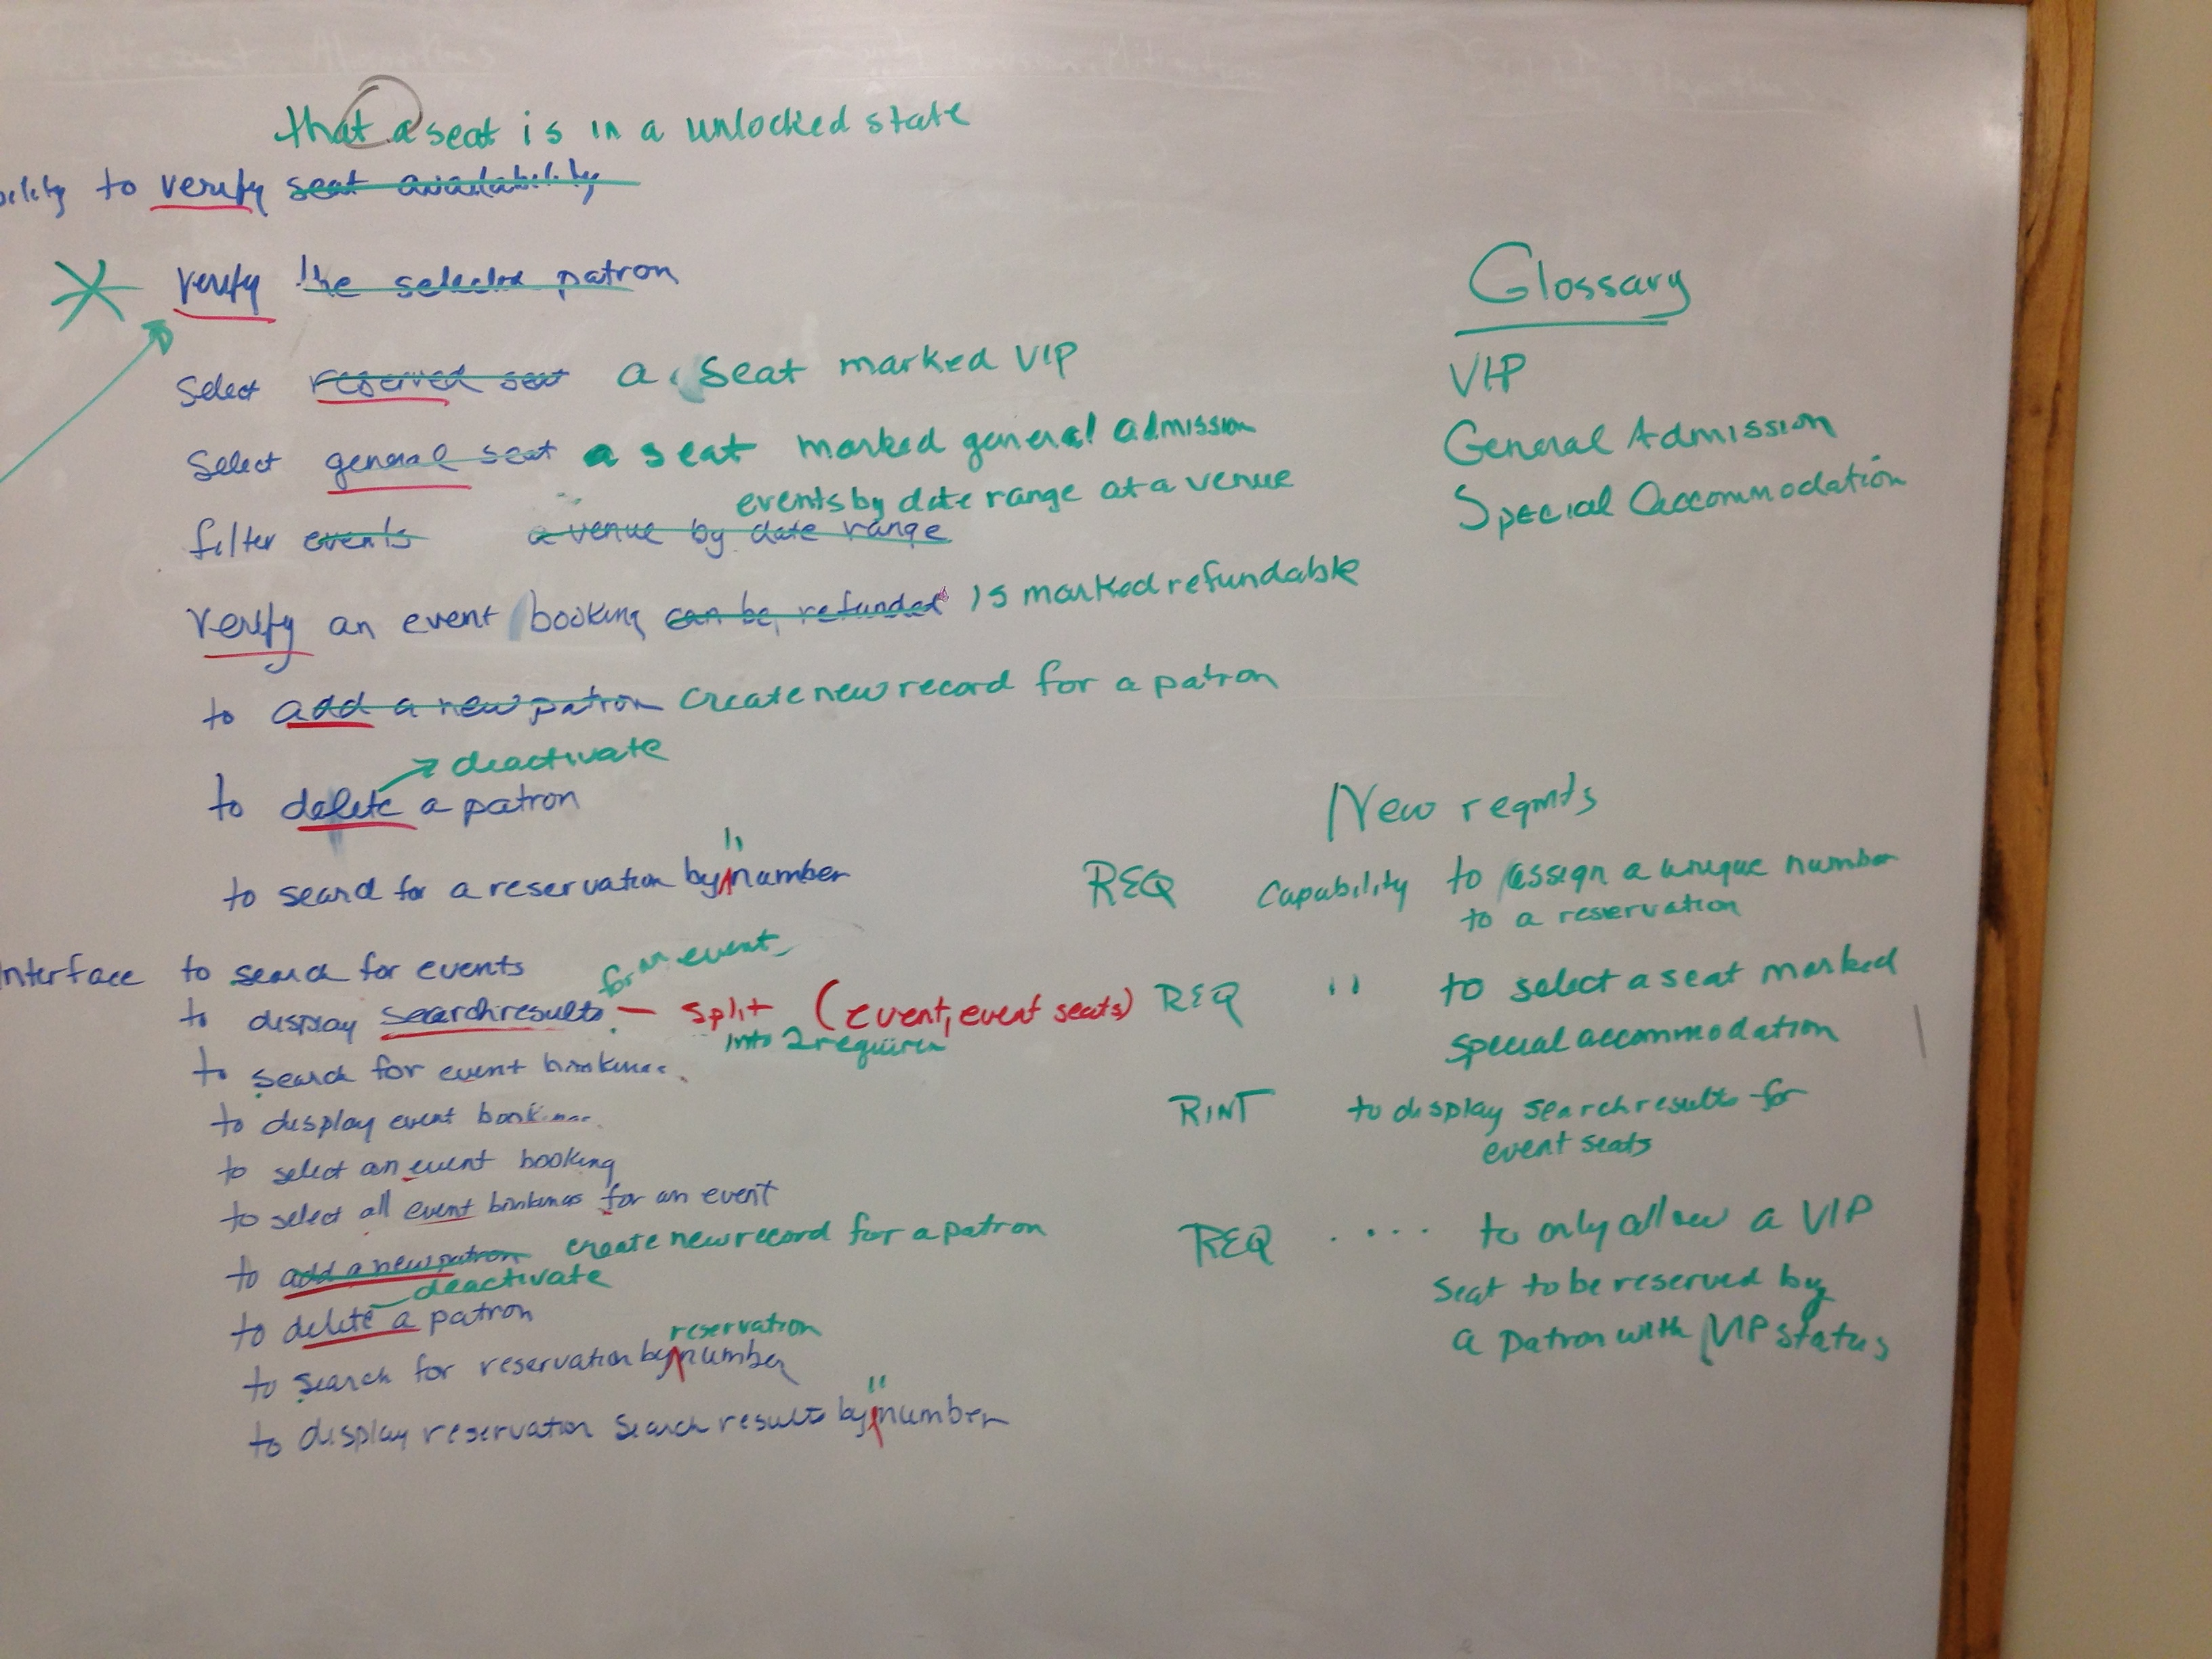 that a seat is in a unlocked state
to verify seat availability
verify the selected patron
Select reserved seat a seat marked VIP
Select general seat a seat marked general admission
events by date range at a venue
filter events a venue by date range
Verify an event booking can be refunded is marked refundable
to add a new patron create new record for a patron
deactivate
to delete a patron
"
to search for a reservation by number
Interface to search for events
for an event
to display search results - split (event, event seats)
into 2
to search for event
to display event
to select an event booking
to select all event bookings for an event
to add a new patron create new record for a patron
deactivate
to delete a patron
reservation
to search for reservation by number
"
to display reservation search results by number
Glossary
VIP
General Admission
Special Accommodation
New reqmts
REQ Capability to assign a unique number
to a reservation
REQ " to select a seat marked
special accommodation
RINT to display search results for
event seats
REQ .... to only allow a VIP
seat to be reserved by
a patron with VIP status